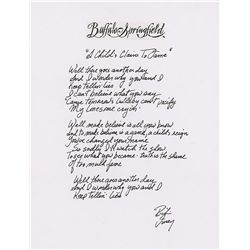 Buffalo Springfield
"A Child's Claim To Fame"
Well there goes another day
And I wonder why you and I
Keep Tellin' Lies
I Can't believe what you say
Cause Tomorrow's Lullaby can't pacify
My lonesome cryin'
Well make believe is all you know
And to make believe is a game, a child's reign
You've changed your name
So sadly I'll watch the show
To see what you became: Truth is the shame
of too much fame
Well there goes another day
And I wonder why you and I
Keep Tellin' Lies
Furay